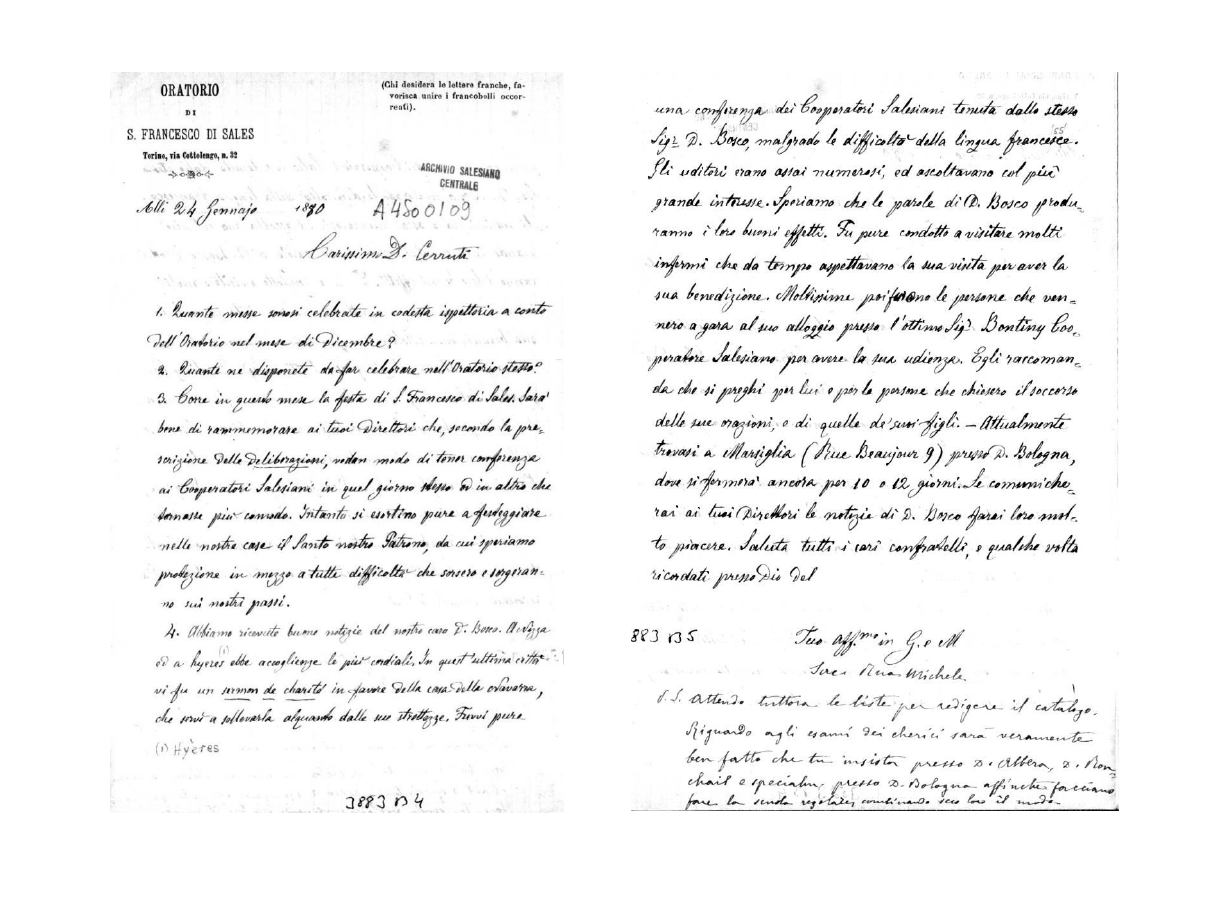 ORATORIO
DI
S. FRANCESCO DI SALES
Torino, via Cottolengo, n. 32
(Chi desidera le lettere franche, fa-
vorisca unire i francobolli occor-
renti).
ARCHIVIO SALESIANO
CENTRALE
Alli 24 Gennajo 1880
A4500109
Carissimo D. Cerruti
1. Quante messe sonosi celebrate in codesta ispettoria a conto
dell'Oratorio nel mese di Dicembre?
2. Quante ne disponete da far celebrare nell'Oratorio stesso?
3. Corre in questo mese la festa di S. Francesco di Sales. Sarà
bene di rammemorare ai tuoi Direttori che, secondo la pre=
scrizione delle Deliberazioni, vedan modo di tener conferenza
ai Cooperatori Salesiani in quel giorno stesso od in altro che
tornasse più comodo. Intanto si esortino pure a festeggiare
nelle nostre case il Santo nostro Patrono, da cui speriamo
protezione in mezzo a tutte difficoltà che sorsero e sorgeran=
no sui nostri passi.
4. Abbiamo ricevuto buone notizie del nostro caro D. Bosco. A Nizza
ed a hyeres (1) ebbe accoglienze le più cordiali. In quest'ultima città
vi fu un sermon de charité in favore della casa della Navarra,
che servì a sollevarla alquanto dalle sue strettezze. Fuvvi pure
(1) Hyères
3883 B4
una conferenza dei Cooperatori Salesiani tenuta dallo stesso
Sigr D. Bosco, malgrado le difficoltà della lingua francese.
Gli uditori erano assai numerosi, ed ascoltavano col più
grande interesse. Speriamo che le parole di D. Bosco produ=
ranno i loro buoni effetti. Fu pure condotto a visitare molti
infermi che da tempo aspettavano la sua visita per aver la
sua benedizione. Moltissime poi furono le persone che ven=
nero a gara al suo alloggio presso l'ottimo Sigr Bontiny Coo=
peratore Salesiano per avere la sua udienza. Egli raccoman=
da che si preghi per lui e per le persone che chiesero il soccorso
delle sue orazioni, e di quelle de' suoi figli. — Attualmente
trovasi a Marsiglia (Rue Beaujour 9) presso D. Bologna,
dove si fermerà ancora per 10 o 12 giorni. Se comuniche=
rai ai tuoi Direttori le notizie di D. Bosco farai loro mol=
to piacere. Saluta tutti i cari confratelli, e qualche volta
ricordati presso Dio del
883 B5
Tuo Aff.mo in G. e M
Sac. Rua Michele
P.S. Attendo tuttora le liste per redigere il catalogo.
Riguardo agli esami dei cherici sarà veramente
ben fatto che tu insista presso D. Albera, D. Ron=
chail e specialm. presso D. Bologna affinché facciano
fare la scuola regolare, combinando seco loro il modo